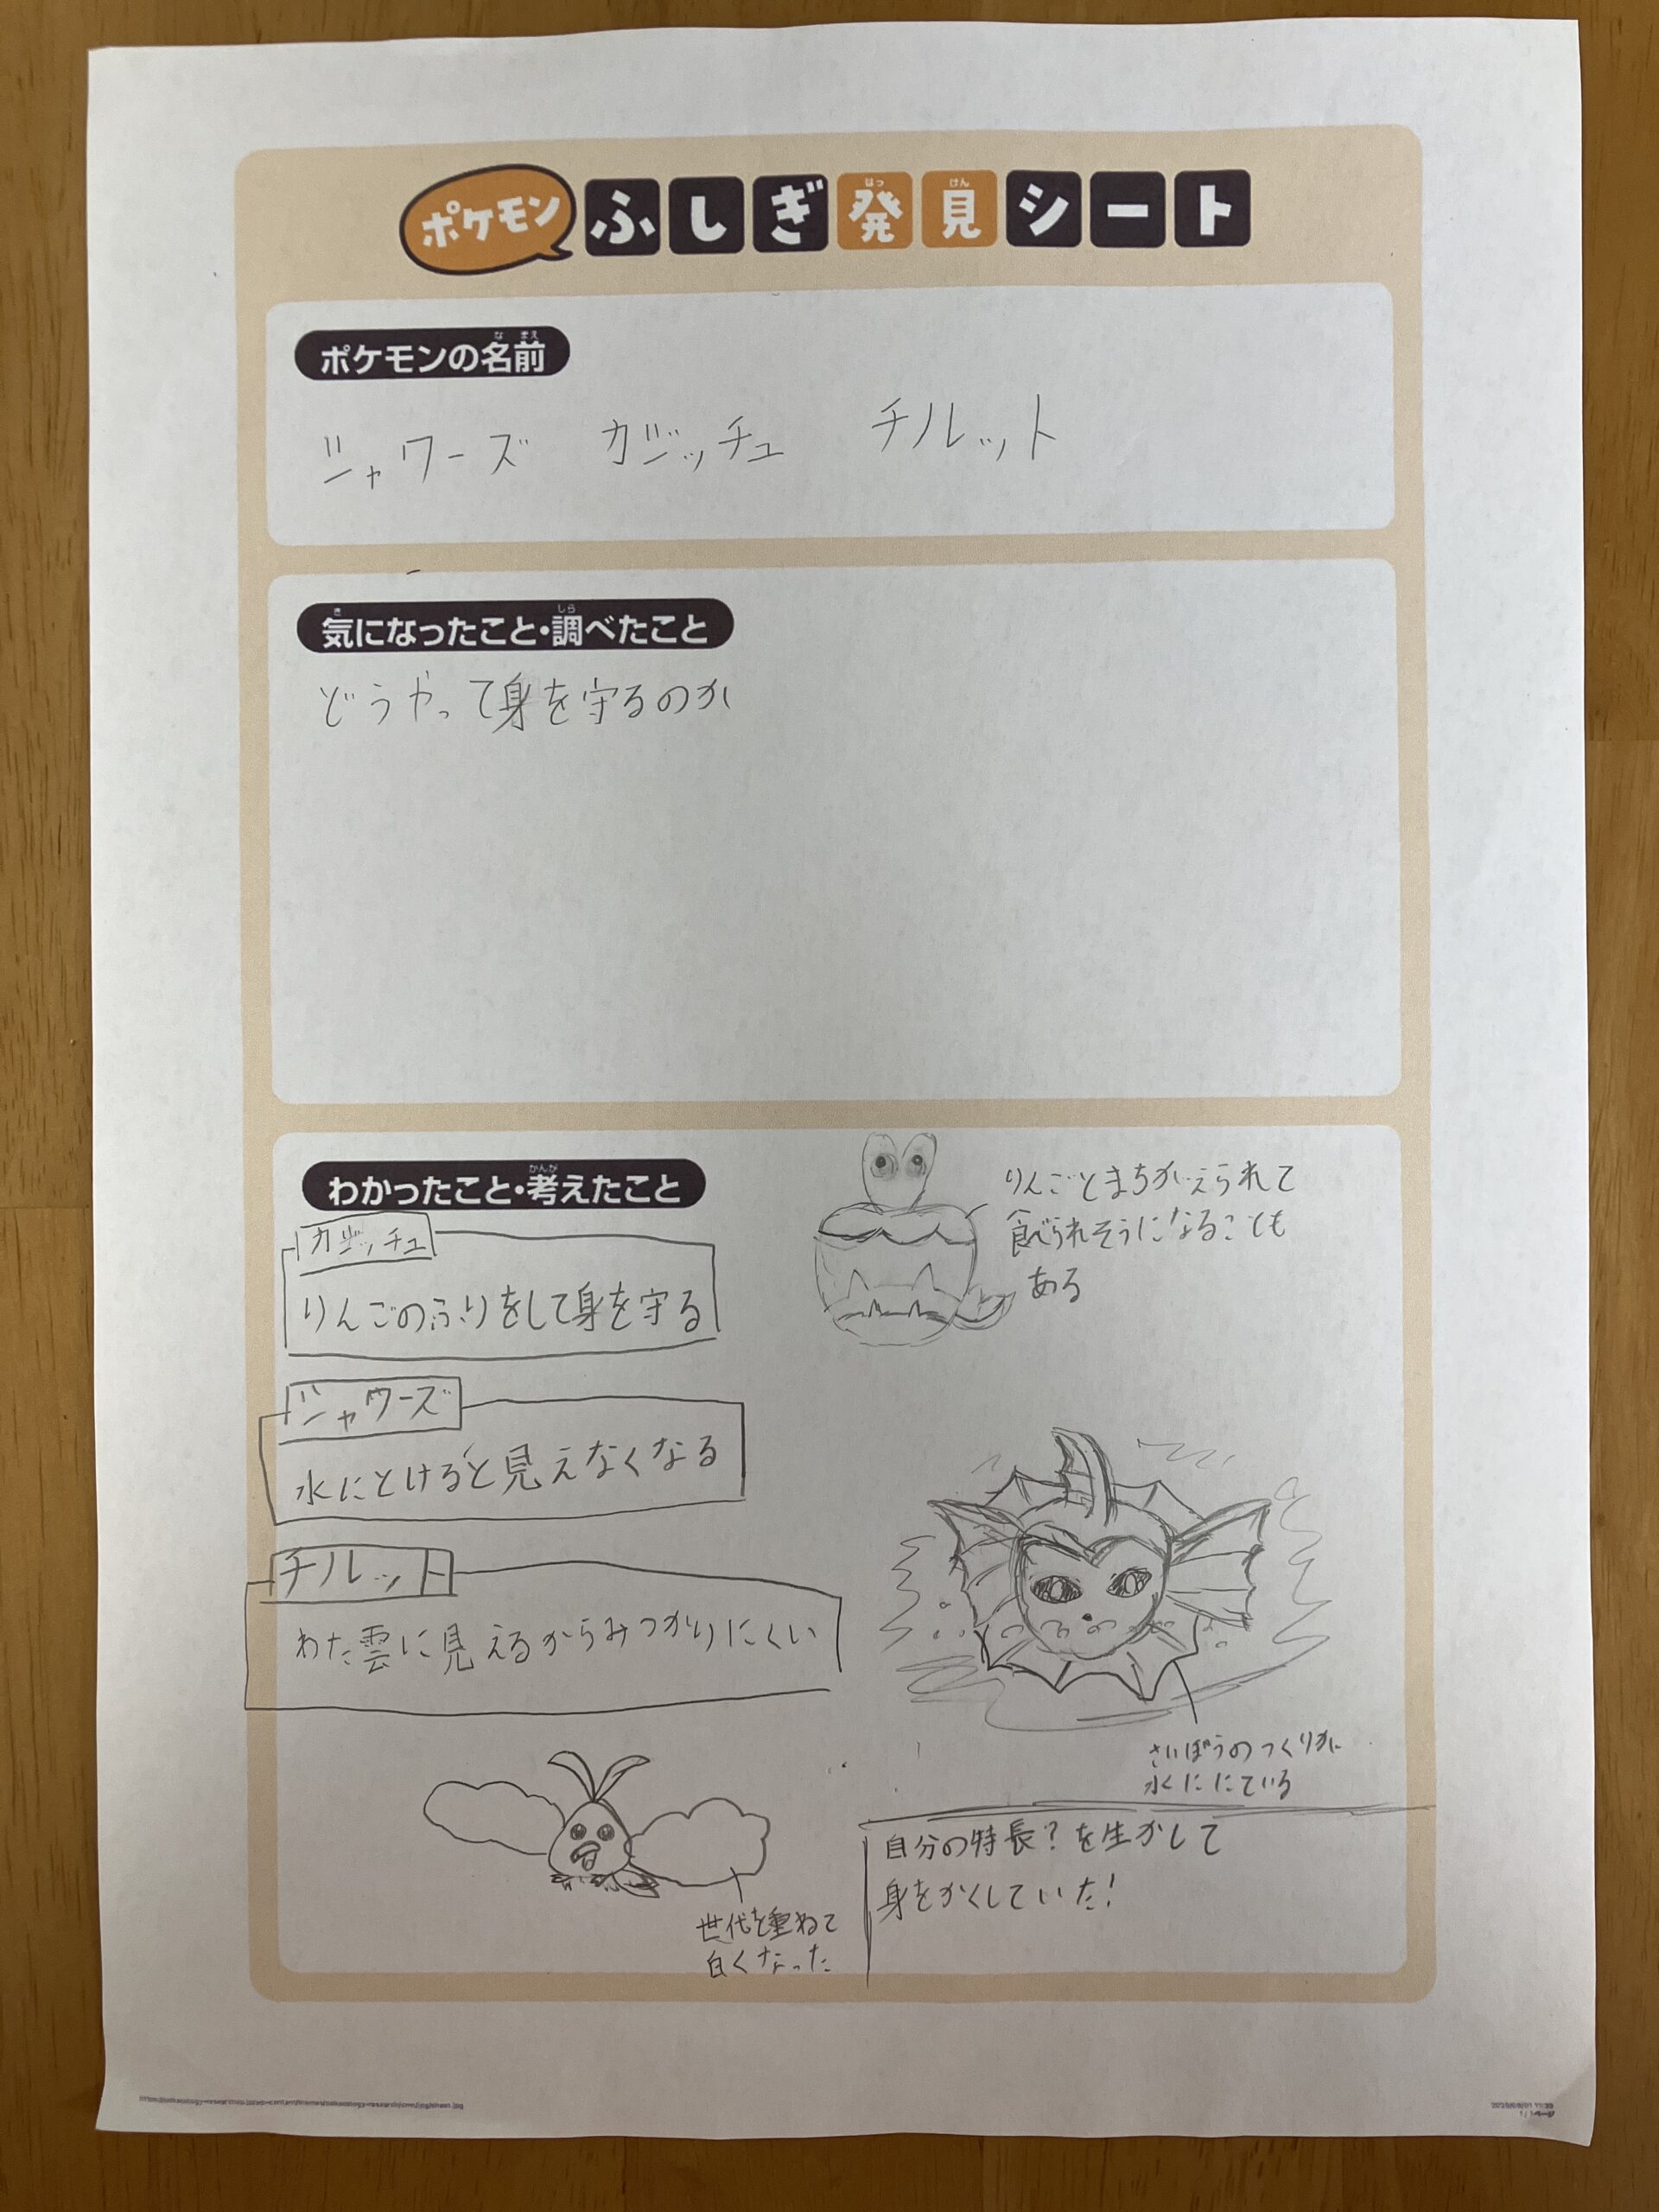 ポケモン ふしぎ発見シート
ポケモンの名前
シャワーズ ガジッチュ チルット
気になったこと・調べたこと
どうやって身を守るのか
わかったこと・考えたこと
ガジッチュ
りんごのふりをして身を守る
りんごとまちがえられて
食べられそうになることも
ある
シャワーズ
水にとけると見えなくなる
さいぼうのつくりが
水ににている
チルット
わた雲に見えるからみつかりにくい
世代を重ねて
白くなった
自分の特長?を生かして
身をかくしていた!